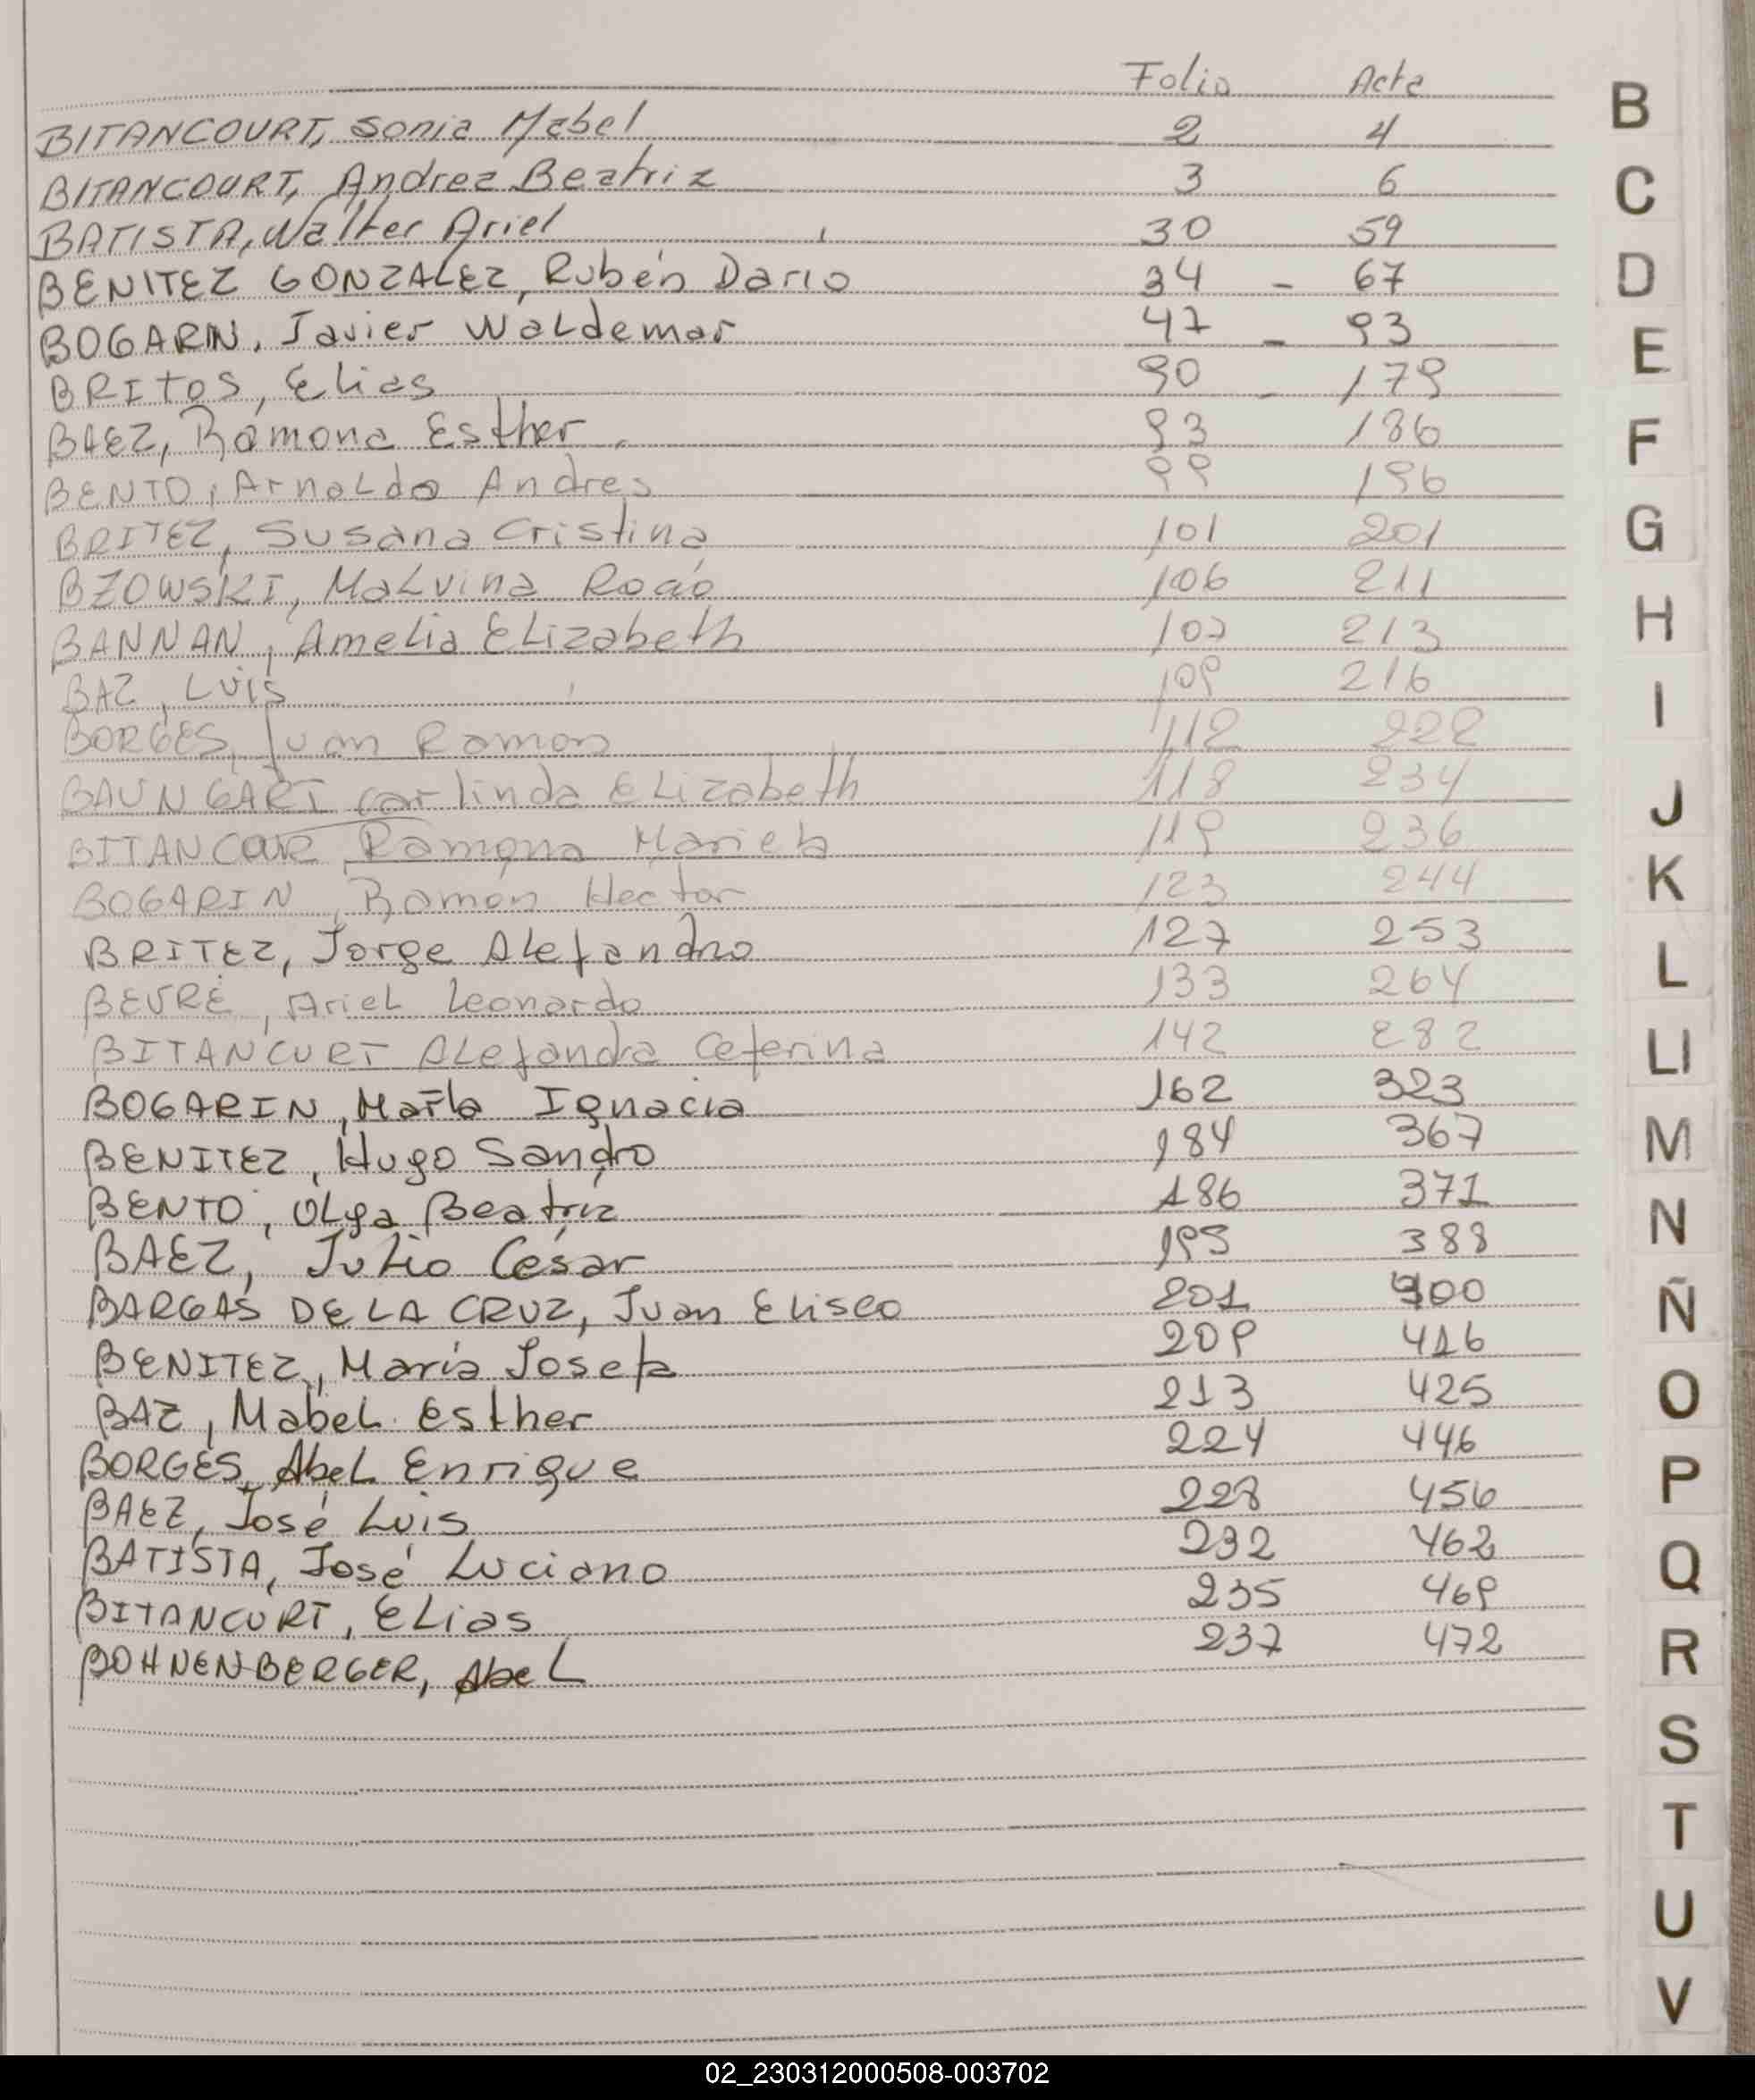 Folio Acta
BITANCOURT, Sonia Mabel 2 4
BITANCOURT, Andrea Beatriz 3 6
BATISTA, Walter Ariel 30 59
BENITEZ GONZALEZ, Rubén Dario 34 - 67
BOGARIN, Javier Waldemar 47 - 93
BRITOS, Elias 90 - 179
BAEZ, Ramona Esther 93 186
BENTO, Arnaldo Andres 99 196
BRITEZ, Susana Cristina 101 201
BZOWSKI, Malvina Rocío 106 211
BANNAN, Amelia Elizabeth 107 213
BAZ, Luis 109 216
BORGES, Juan Ramon 112 222
BAUNGART Carlinda Elizabeth 118 234
BITANCOUR Ramona Mariela 119 236
BOGARIN, Ramon Hector 123 244
BRITEZ, Jorge Alejandro 127 253
BEVRE, Ariel Leonardo 133 264
BITANCURT Alejandra Ceferina 142 282
BOGARIN, María Ignacia 162 323
BENITEZ, Hugo Sandro 184 367
BENTO, Olga Beatriz 186 371
BAEZ, Julio César 195 388
BARGAS DE LA CRUZ, Juan Eliseo 201 400
BENITEZ, María Josefa 209 416
BAZ, Mabel Esther 213 425
BORGES, Abel Enrique 224 446
BAEZ, José Luis 228 456
BATISTA, José Luciano 232 462
BITANCURT, Elias 235 469
BOHNENBERGER, Abel 237 472
B
C
D
E
F
G
H
I
J
K
L
Ll
M
N
Ñ
O
P
Q
R
S
T
U
V
02_230312000508-003702